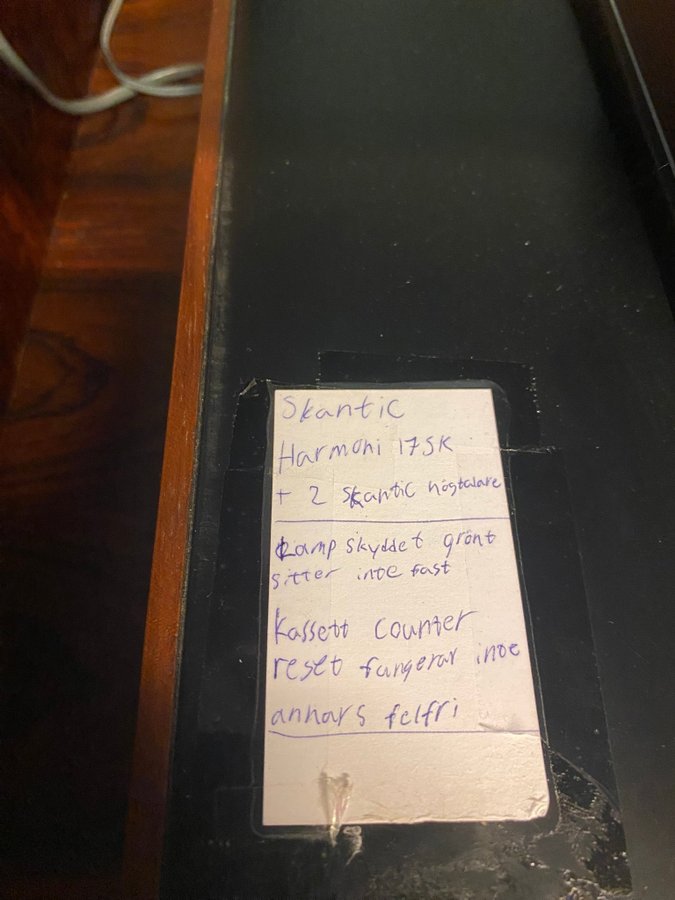 Skantic
Harmoni 175K
+ 2 Skantic högtalare
Lampskyddet grönt
sitter inte fast
Kassett counter
reset fungerar inte
annars felfri